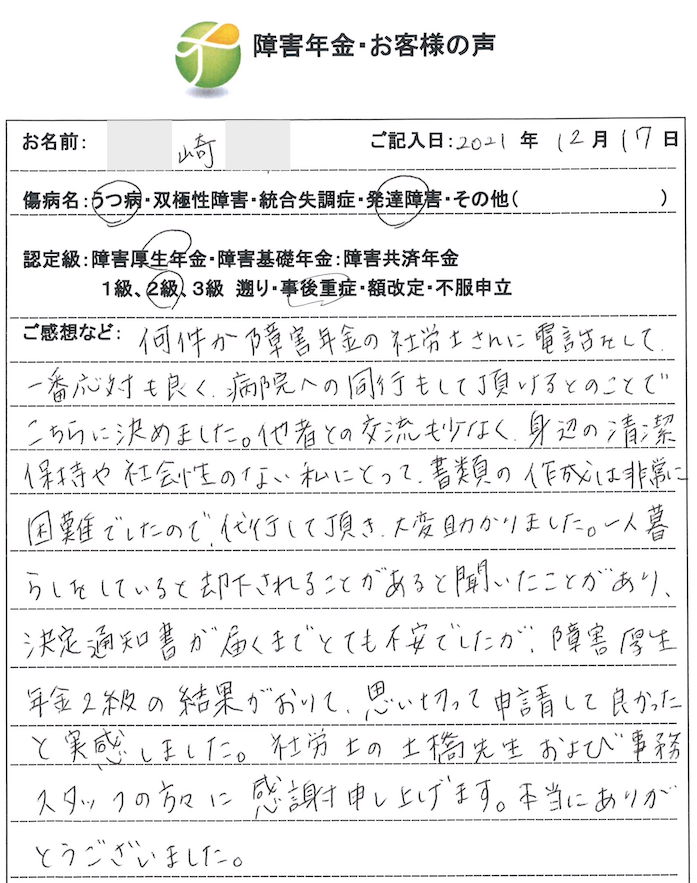 障害年金・お客様の声
お名前： 崎 ご記入日：2021 年 12月 17日
傷病名：うつ病・双極性障害・統合失調症・発達障害・その他（ ）
認定級：障害厚生年金・障害基礎年金：障害共済年金
1級、2級、3級 遡り・事後重症・額改定・不服申立
ご感想など： 何件か障害年金の社労士さんに電話をして、
一番応対も良く、病院への同行もして頂けるとのことで
こちらに決めました。他者との交流も少なく、身辺の清潔
保持や社会性のない私にとって、書類の作成は非常に
困難でしたので、代行して頂き、大変助かりました。一人暮
らしをしていると却下されることがあると聞いたことがあり、
決定通知書が届くまでとても不安でしたが、障害厚生
年金2級の結果がおりて、思い切って申請して良かった
と実感しました。社労士の土橋先生および事務
スタッフの方々に感謝申し上げます。本当にありが
とうございました。